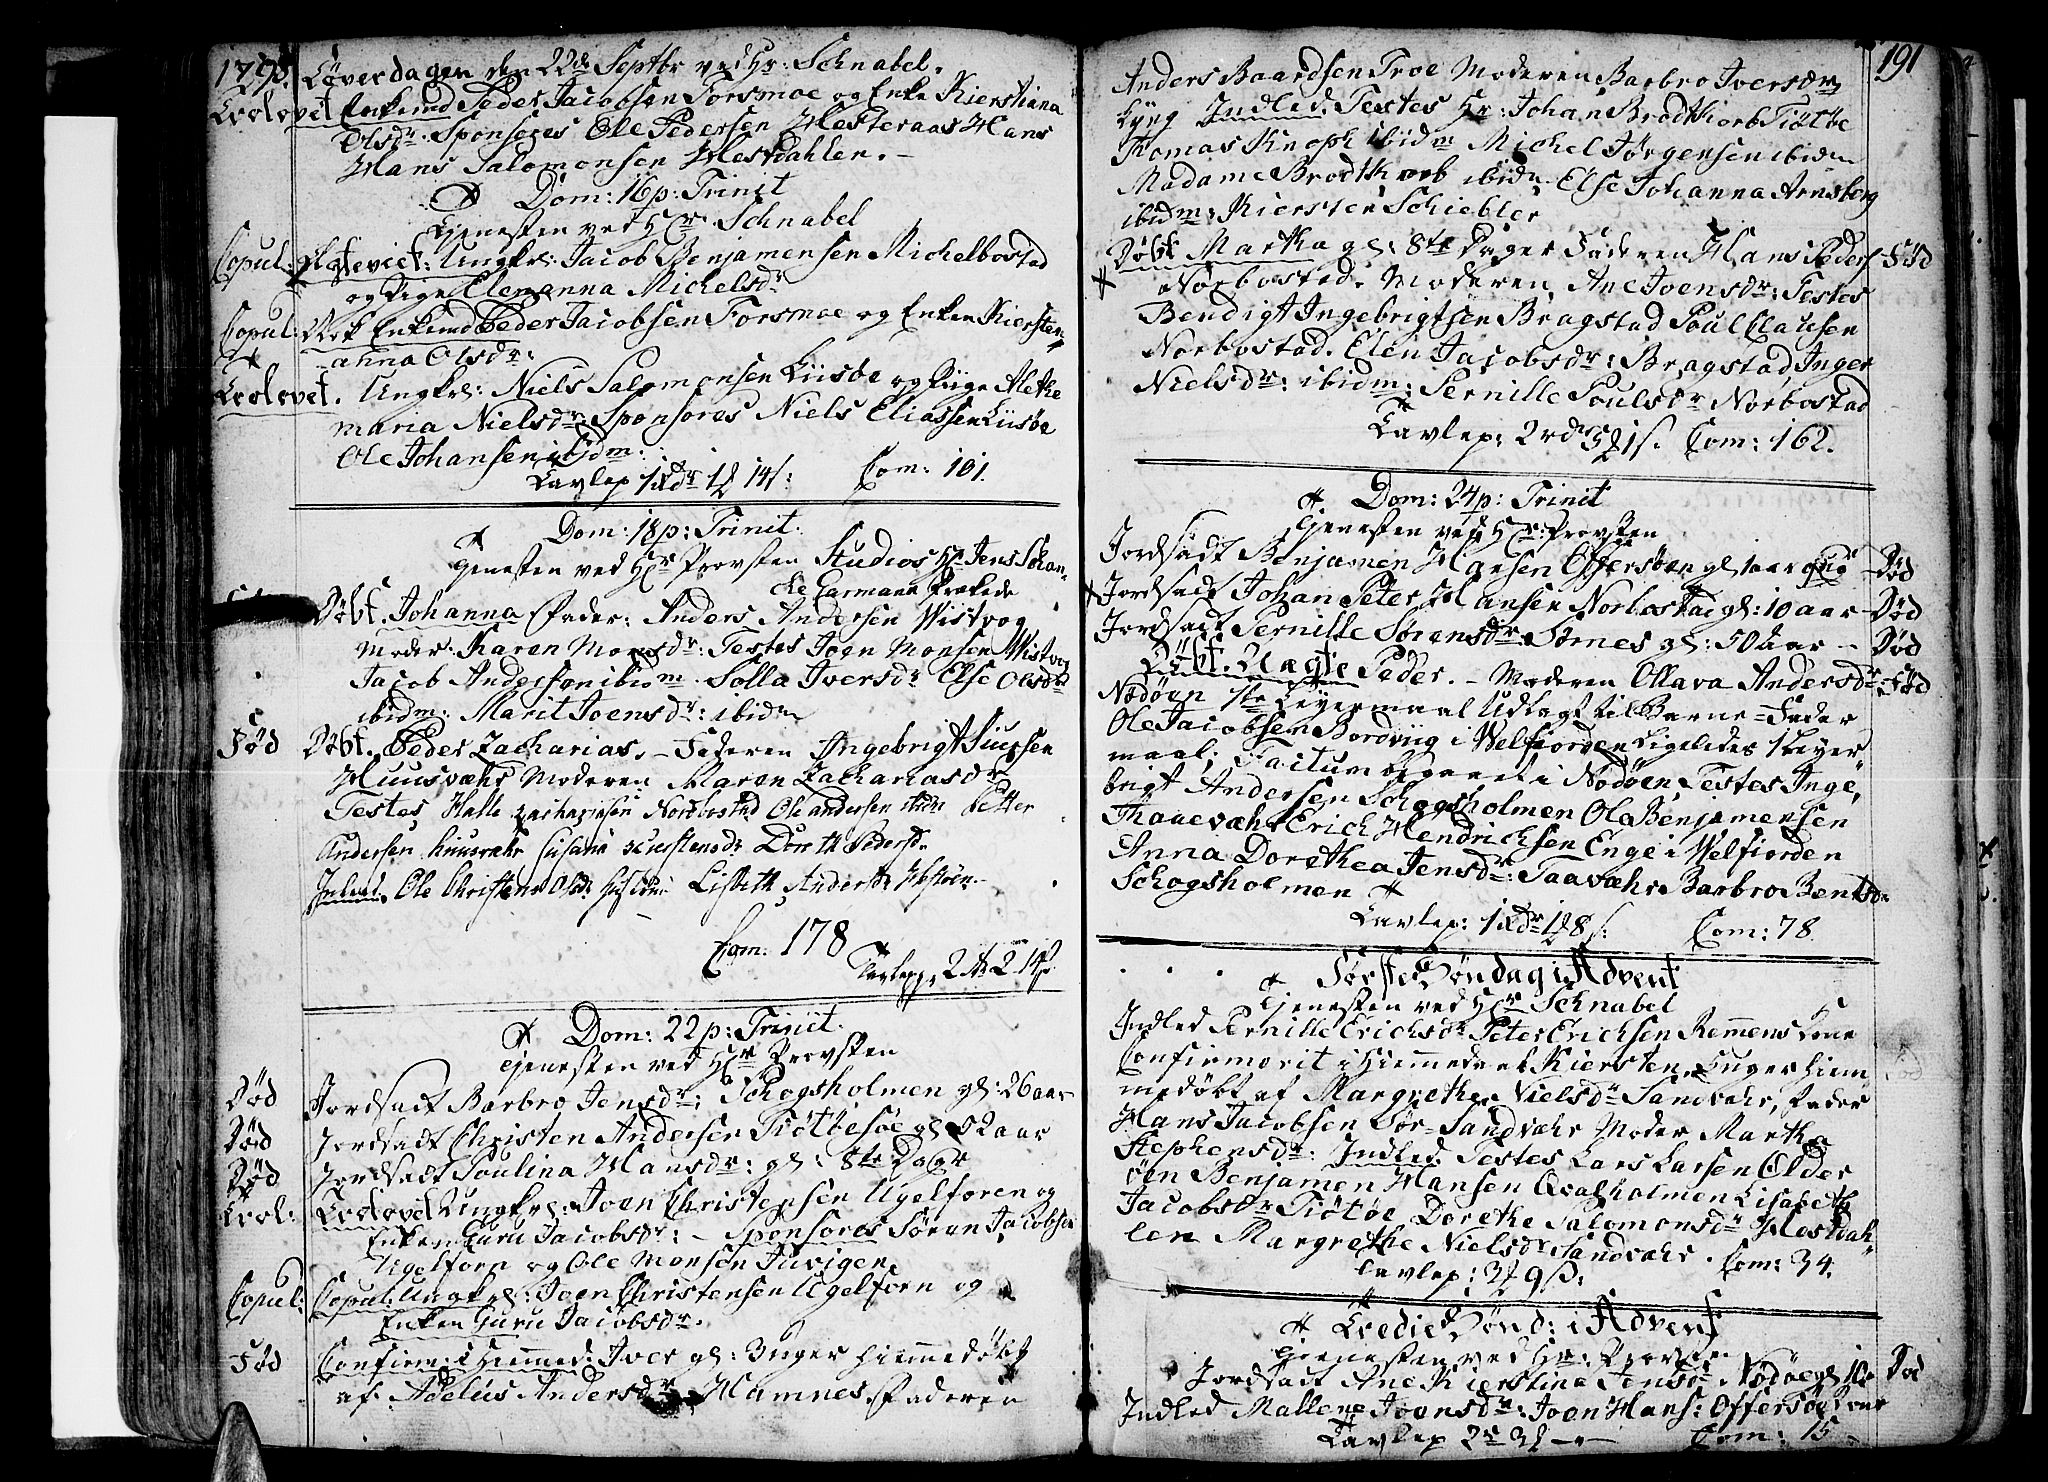 Løverdagen den 22de Septbr ved Hr: Schnabel.
Trolovet Enkemd Peder Jacobsen Forsmoe og Enke Kierstiana
Olsdr. Sponsores Ole Pedersen Hesteraas Hans
Hans Salomonsen Hestdahlen.
Dom: 16 p: Trinit
Tjenesten ved Hr Schnabel
Copul: Ungkrl: Jacob Benjamensen Michelbostad
og Pige Elenanna Michelsdr
Copul: Enkemd Peder Jacobsen Forsmoe og Enken Kiersten
anna Olsdr:
Trolovet. Ungkrl: Niels Salomonsen Liisøe og Piige Alethe
maria Nielsdr: Sponsores Niels Eliassen Liisøe
Ole Johansen ibidm:
Tavlep 1 Rdr 1 14 s: Com: 101.
Dom: 18 p: Trinit.
Tjenesten ved Hr Provsten Studios Hr Jens Schan
che Garmann Prækede
Døbt. Johanna Fader: Anders Andersen Wistvog
Moder: Karen Monsdr: Testes Joen Monsen Wistvog
Jacob Andersen ibidm. Solla Iversdr Else Olsdr
ibidm: Marit Joensdr: ibidm
Fød Døbt. Peder Zacharias. Faderen Angebrigt Siursen
Huusvæhr Moderen Maren Zachariasdr
Testes Halle Zachariasen Norbostad Ole Andersen Petter
Andersen huusvæhr Susana Dorth Pedersd.
Inled. Ole Christens Lisbeth Andersdr
Com: 178
Tavlep 2 2 14 s
Dom: 22 p: Trinit.
Tjenesten ved Hr Provsten
Død Jordsadt Barbro Jensdr: Schogsholmen gl: 26 aar
Død Jordsadt Christen Andersen Tiøtøesøe gl: 52 aar
Død Jordsadt Poulina Hansdr: gl: 8te Dage
Trol: Trolovet Ungkrl: Joen Christensen Ugelforen og
Enken Guru Jacobsdr: Sponsores Søren Jacobsen
Ugelforn og Ole Monsen Tuvigen
Copul: Copul: Ungkrl: Joen Christensen Ugelforn og
Enken Guru Jacobsdr.
Fød Confirm: i Hiemmed: Iver gl: 3 Uger hiemmedøbt
af Adelus Andersdr Hamnes. Faderen
191
Anders Baardsen Troe Moderen Barbro Iversdr
Lyng Indled. Testes Hr: Johan Brodtkorb Tiøtøe
Thomas Knoph ibidm Michel Jørgensen ibidm
Madame Brodtkorb ibidm. Else Johanna Arnsberg
ibidm: Kiersten Schiebler
Døbt Martha gl: 8te Dager Faderen Hans Peders Fød
Norbostad. Moderen Ane Joensdr: Testes
Bendigt Ingebrigtsen Bragstad Poul Clausen
Norbostad. Elen Jacobsdr: Bragstad, Inger
Nielsdr: ibidm: Pernille Poulsdr Norbostad
Tavlep: 2 rdr 1 s. Com: 162.
Dom: 24 p: Trinit
Tjenesten ved Hr Provsten
Jordsadt Benjamen Hansen Offersøen gl 1 aar Død
Jordsadt Johan Peter Hansen Norbostad gl: 10 aar Død
Jordsadt Pernille Sørensdr Sørnes gl: 50 aar Død
Døbt. Uægte Peder. Moderen Ollava Andersdr: Fød
Nødøen 1te Leyermaal Udlagt til Barne-Fader
Ole Jacobsen Bordviig i Welfiorden Ligeledes 1 Leyer
maal; Factum begaaet i Nødøen, Testes Inge
brigt Andersen Schogsholmen Ole Benjamensen
Thauevæhr Erich Hendrichsen Enge i Welfiorden
Anna Dorethea Jensdr: Taavæhr Barbro Bentsdr
Schogsholmen
Tavlep: 1 Rdr 1 8 s: Com: 78.
Første Søndag i Advent
Tjenesten ved Hr Schnabel
Indled Pernille Erichsdr Peter Erichsen Remmens Kone
Confirmavit i Hiemmedaab Kiersten Uger hiem
medøbt af Margrethe Nielsdr Sandvæhr, Fader
Hans Jacobsen Sør-Sandvæhr Moder Martha
Stephensdr: Indled. Testes Lars Larsen Older
øen Benjamen Hansen Qvalholmen Lisabeth
Jacobsdr Tiøtøe Dorethe Salomonsdr Hestdah
len Margrethe Nielsdr Sandvæhr.
Tavlep: 3 9 s: Com: 34.
Tredie Sønd: i Advent
Tjenesten ved Hr: Provsten
Jordsadt Ane Kierstine Jensdr Nødøe gl 10 Død
Indled Mallene Joensdr: Joen Hans: Offersøe Kone
Tavlep 2 3 Com: 15